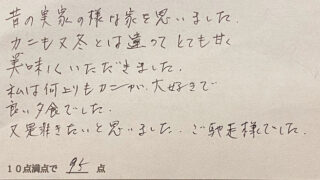 昔の実家の様な家を思いました.
カニも又冬とは違ってとても甘く
美味しくいただきました.
私は何よりもカニが大好きで
良い夕食でした.
又是非きたいと思いました. ご馳走様でした.
10点満点で 95 点